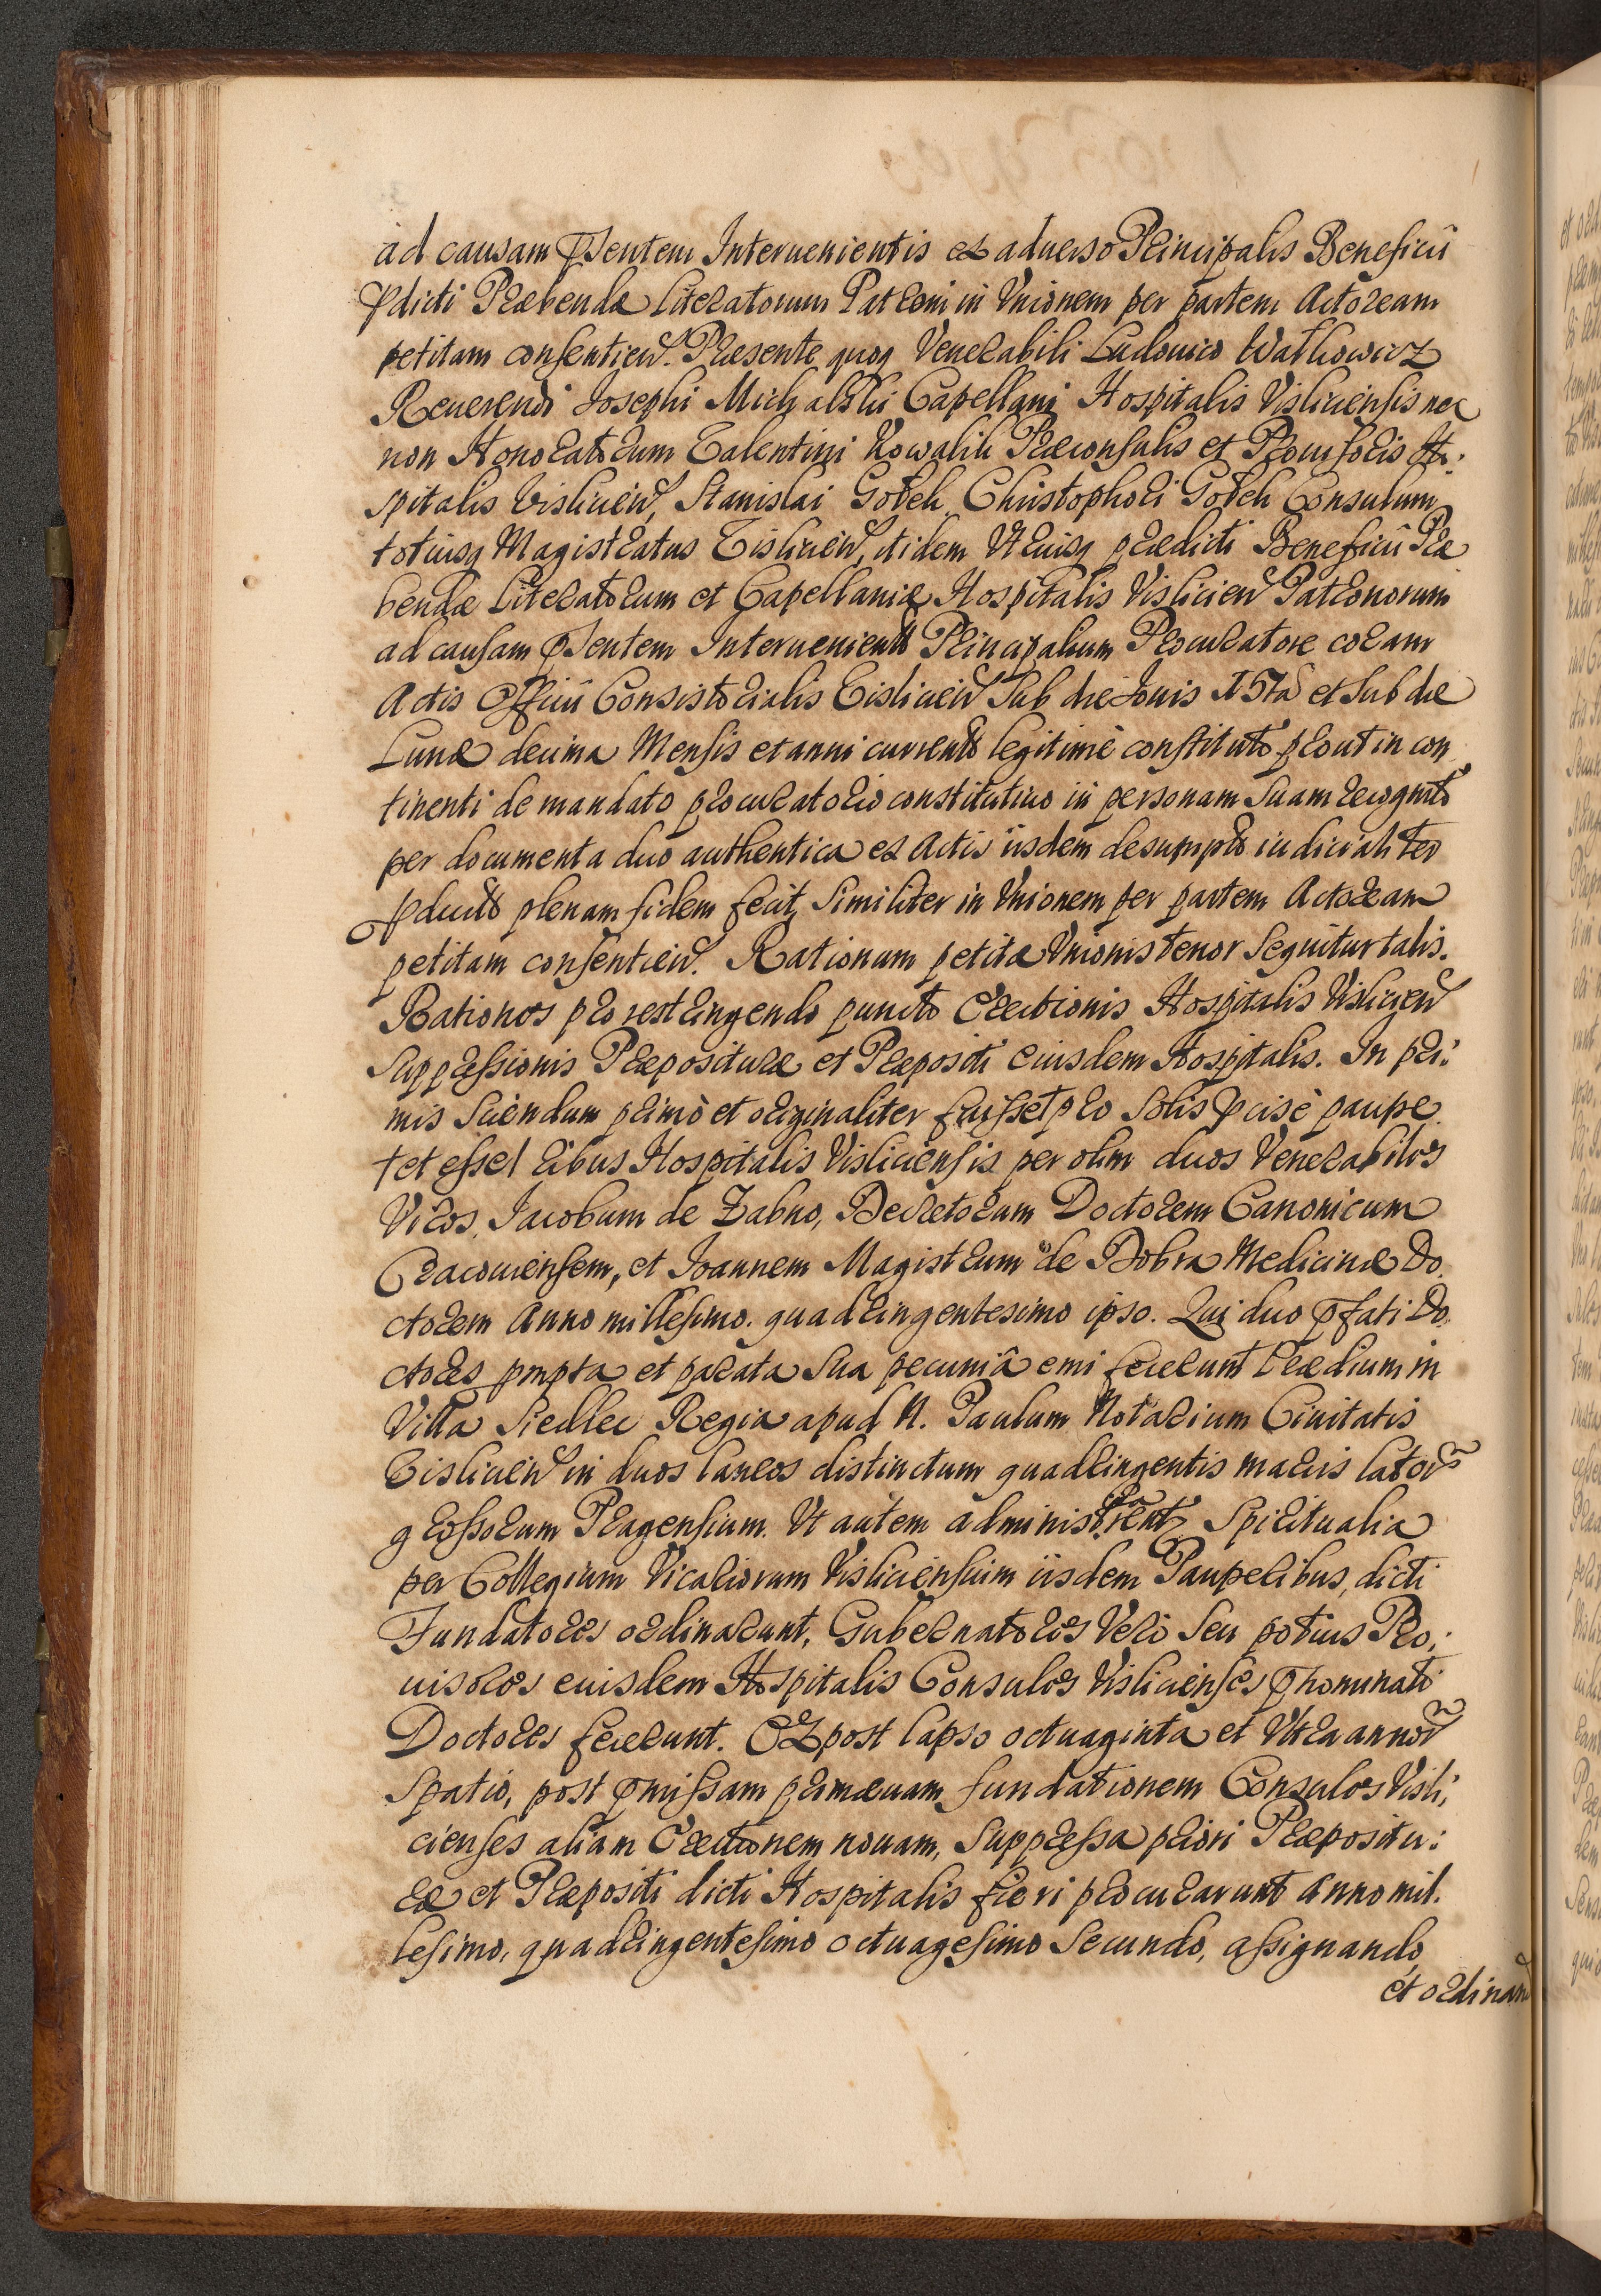 ad causam pñsentem Interuenientis ex aduerso Principalis Beneficij
p̃dicti Præbendæ Literatorum Patroni in Vnionem per partem Actoream
petitam consentien. Præsente quoq Venerabili Ludouico Watkowicz
Reuerendi Josephi Michalski Capellani Hospitalis Visliciensis nec
non Honoratorum Valentini Kowalik Præconsulis et Prouisoris Ho:
spitalis Vislicien, Stanislai Gotek Christophori Gotek Consulum
totiusq Magistratus Vislicien, itidem Vtriusq prædicti Beneficij Præ
bendæ Literatorum et Capellaniæ Hospitalis Vislicien Patronorum
ad causam pñsentem Interuenient Principalium Procuratore coram
Actis Officij Consistorialis Vislicien Sub die Jouis 15ta et Sub die
Lunæ decima Mensis et anni currents legitimè constituto prout in con
tinenti de mandato procuratorio constitutiuo in personam Suam recognito
per documenta duo authentica ex Actis iisdem desumpta iudicialiter
pducta plenam fidem fecit, Similiter in Vnionem per partem Actoream
petitam consentien. Rationum petitæ Vnionis tenor Sequitur talis.
Rationes pro restringendo puncto Erectionis Hospitalis Vislicien
Suppressionis Præposituræ et Præpositi eiusdem Hospitalis. In pri:
mis Sciendum primò et originaliter fuisse pro Solis p̃cisè paupe
† et esset ribus Hospitalis Visliciensis per olim duos Venerabiles
Viros, Jacobum de Zabno, Decretorum Doctorem Canonicum
Cracouiensem, et Joannem Magistrum de Dobra Medicinæ Do
ctorem Anno millesimo. quadringentesimo ipso. Qui duo p̃fati Do
ctores prompta et parata Sua pecuniâ emi fecerunt Prædium in
Villa Siedlec Regia apud N. Paulum Notarium Ciuitatis
Vislicien in duos laneos distinctum quadringentis marcis lator
grossorum Pragensium. Vt autem administrent Spiritualia
per Collegium Vicariorum Visliciensium iisdem Pauperibus, dicti
Fundatores ordinarunt, Gubernatores Verò Seu potius Pro:
uisores euisdem Hospitalis Consules Vislicienses p̃nominati
Doctores fecerunt. Ex post lapso octuaginta et Vltra annor
Spatio, post p̃missam primæuam fundationem Consules Visli:
cienses aliam Erectionem nouam, Suppressa priori Præpositu:
ræ et Præpositi dicti Hospitalis fieri procurarunt Anno mil.
lesimo, quadringentesimo octuagesimo Secundo, assignando
et ordinan